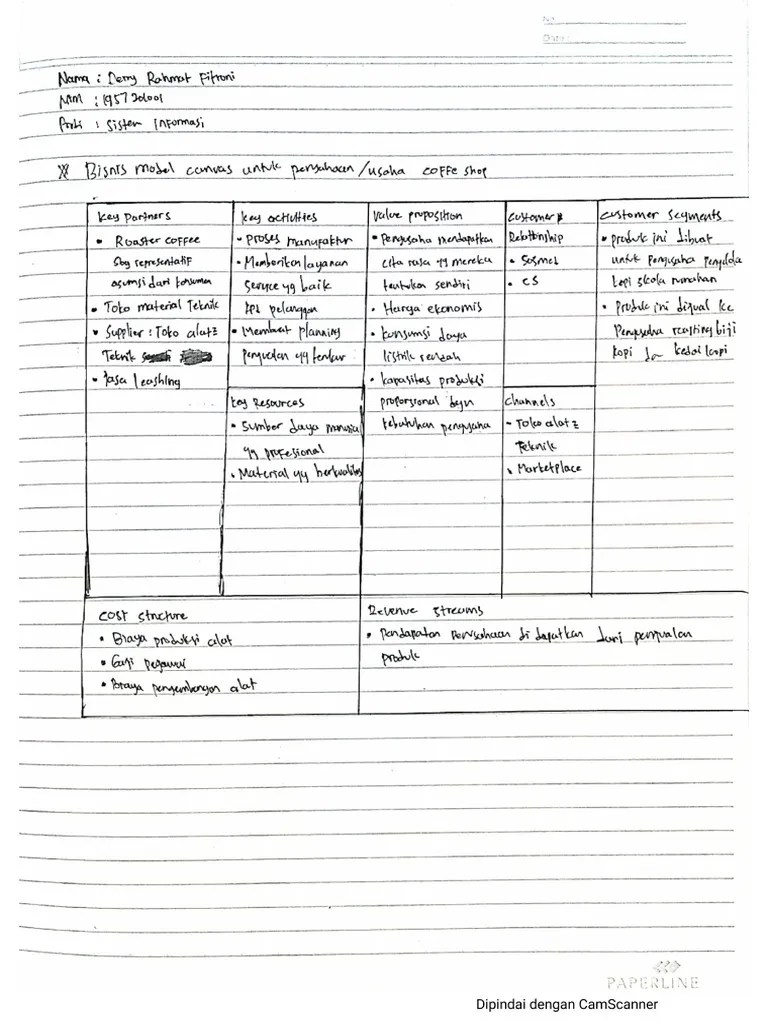 No.
Date:
Nama : Derry Rahmat Fitroni
NIM : 195720001
Prodi : Sistem Informasi
Bisnis model canvas untuk perusahaan/usaha coffe shop
Key partners
• Roaster coffee
sbg representatif
asumsi dari konsumen
• Toko material Teknik
• Supplier : Toko alat2
Teknik
• Jasa leashing
Key activities
• Proses manufaktur
• Memberikan layanan
service yg baik
kpd pelanggan
• Membuat planning
yg terukur
Key Resources
• Sumber daya manusia
yg profesional
• Material yg berkualitas
Value proposition
• Pengusaha mendapatkan
cita rasa yg mereka
tentukan sendiri
• Harga ekonomis
• Konsumsi daya
listrik rendah
• Kapasitas produksi
proporsional dgn
kebutuhan pengusaha
Customer
Relationship
• Sosmed
• CS
Channels
- Toko alat2
Teknik
• Marketplace
Customer Segments
• Produk ini dibuat
untuk pengusaha pengelola
kopi skala rumahan
• Produk ini dijual ke
Pengusaha roasting biji
kopi dan kedai kopi
Cost structure
• Biaya produksi alat
• Gaji pegawai
• Biaya pengembangan alat
Revenue streams
• Pendapatan perusahaan di dapatkan dari penjualan
produk
PAPERLINE
Dipindai dengan CamScanner